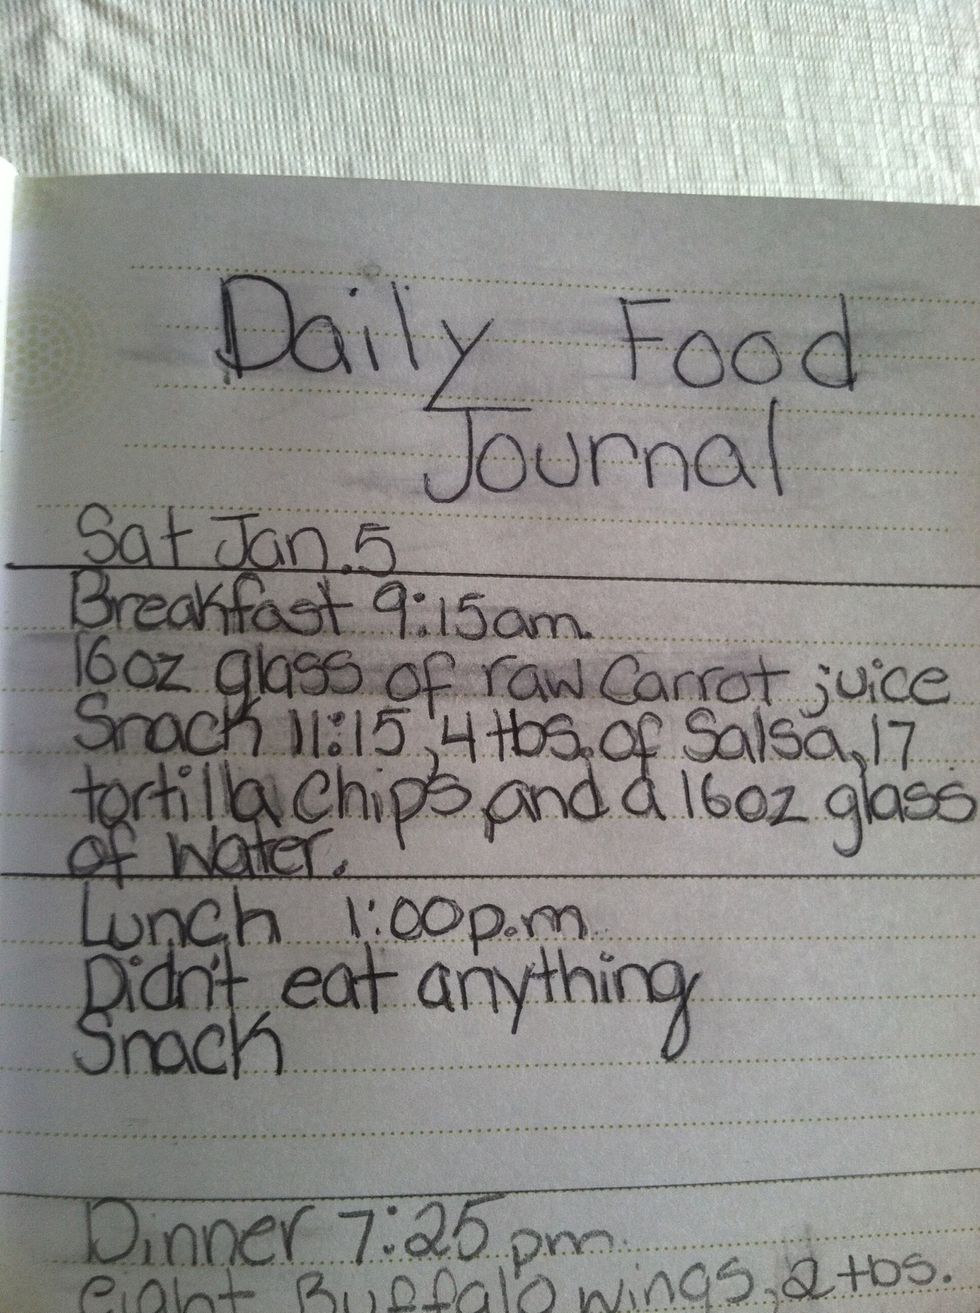 Daily Food
Journal
Sat Jan.5
Breakfast 9:15am.
16oz glass of raw Carrot juice
Snack 11:15, 4 tbs. of Salsa, 17
tortilla chips, and a 16oz glass
of Water.
Lunch 1:00p.m.
Didn't eat anything
Snack
Dinner 7:25pm.
eight Buffalo wings, 2 tbs.